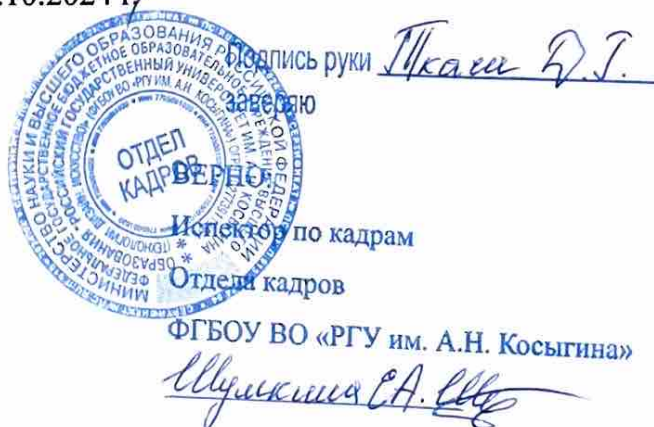 .10.2024 г.
Подпись руки Ткача Д.Г.
заверяю
ВЕРНО:
Испектор по кадрам
Отдела кадров
ФГБОУ ВО «РГУ им. А.Н. Косыгина»
Шумкина Е.А.
МИНИСТЕРСТВО НАУКИ И ВЫСШЕГО ОБРАЗОВАНИЯ РОССИЙСКОЙ ФЕДЕРАЦИИ
ФЕДЕРАЛЬНОЕ ГОСУДАРСТВЕННОЕ БЮДЖЕТНОЕ ОБРАЗОВАТЕЛЬНОЕ УЧРЕЖДЕНИЕ ВЫСШЕГО ОБРАЗОВАНИЯ
"РОССИЙСКИЙ ГОСУДАРСТВЕННЫЙ УНИВЕРСИТЕТ ИМ. А.Н. КОСЫГИНА
(ТЕХНОЛОГИИ. ДИЗАЙН. ИСКУССТВО)" (ФГБОУ ВО «РГУ ИМ. А.Н. КОСЫГИНА»)
ОТДЕЛ
КАДРОВ